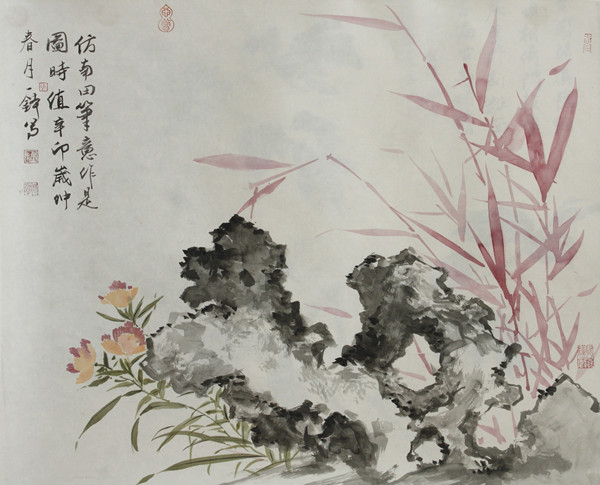 仿南田筆意作是
圖時值辛卯歲仲
春月一鋒写